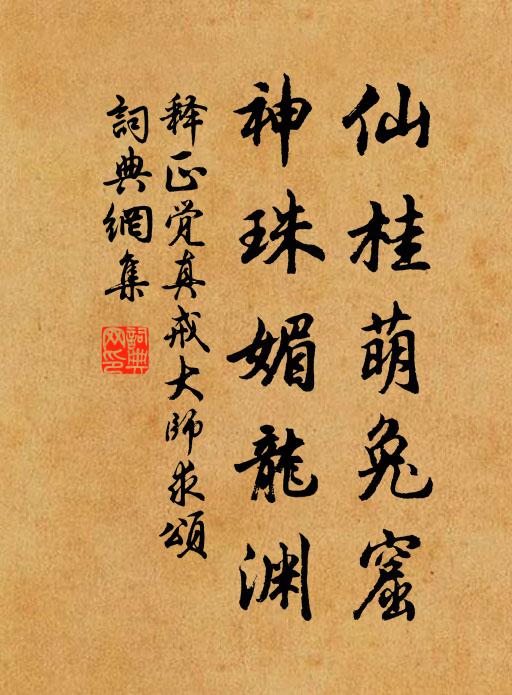 仙桂萌兔窟
神珠媚龍渊
释正觉真戒大師求頌
詞典網集
詞典網印